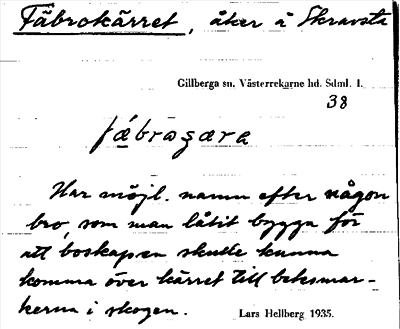 Fäbrokärret, åker å Skravsta
Gillberga sn. Västerrekarne hd. Sdml. l.
38
fæbroʒæra
Har möjl. namn efter någon
bro, som man låtit bygga för
att boskapen skulle kunna
komma över kärret till betesmar-
kerna i skogen.
Lars Hellberg 1935.